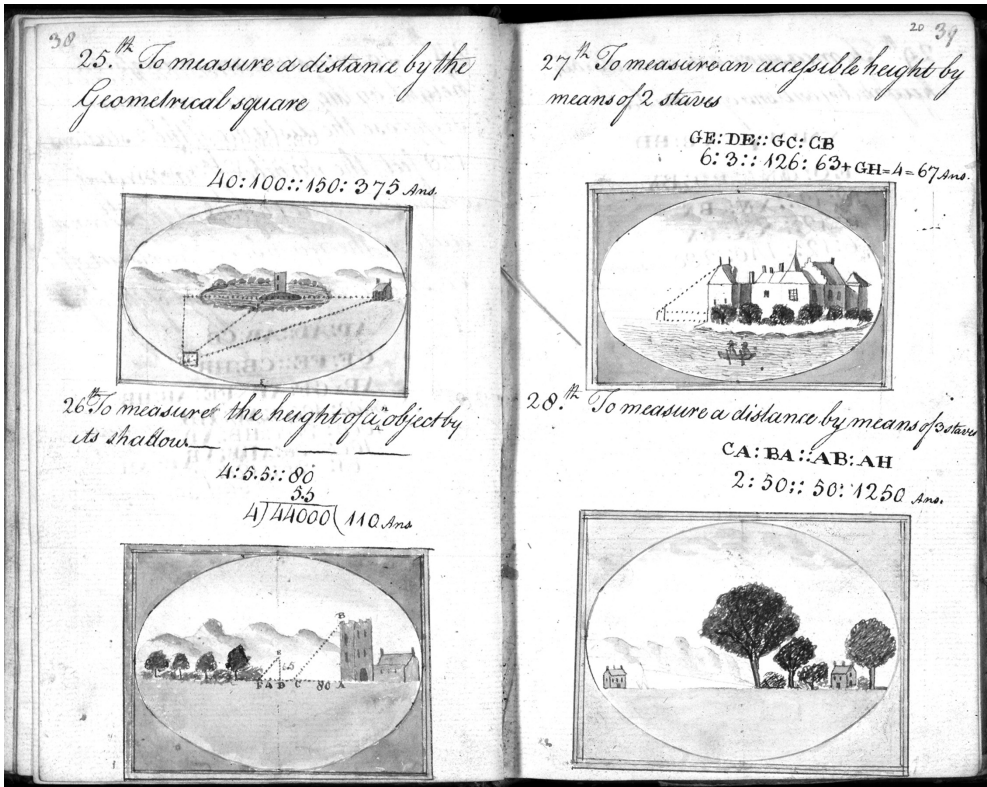 38
25.th To measure a distance by the
Geometrical square
40:100::150:375 Ans.
26th To measure the height of an object by
its shadow
4:5.5::80
5.5
4)44000(110 Ans
B
E
5.5
F 4 D C 80 A
20 39
27th To measure an accessible height by
means of 2 staves
GE:DE::GC:CB
6:3::126:63+GH=4=67 Ans.
28.th To measure a distance by means of 3 staves
CA:BA::AB:AH
2:50::50:1250 Ans.